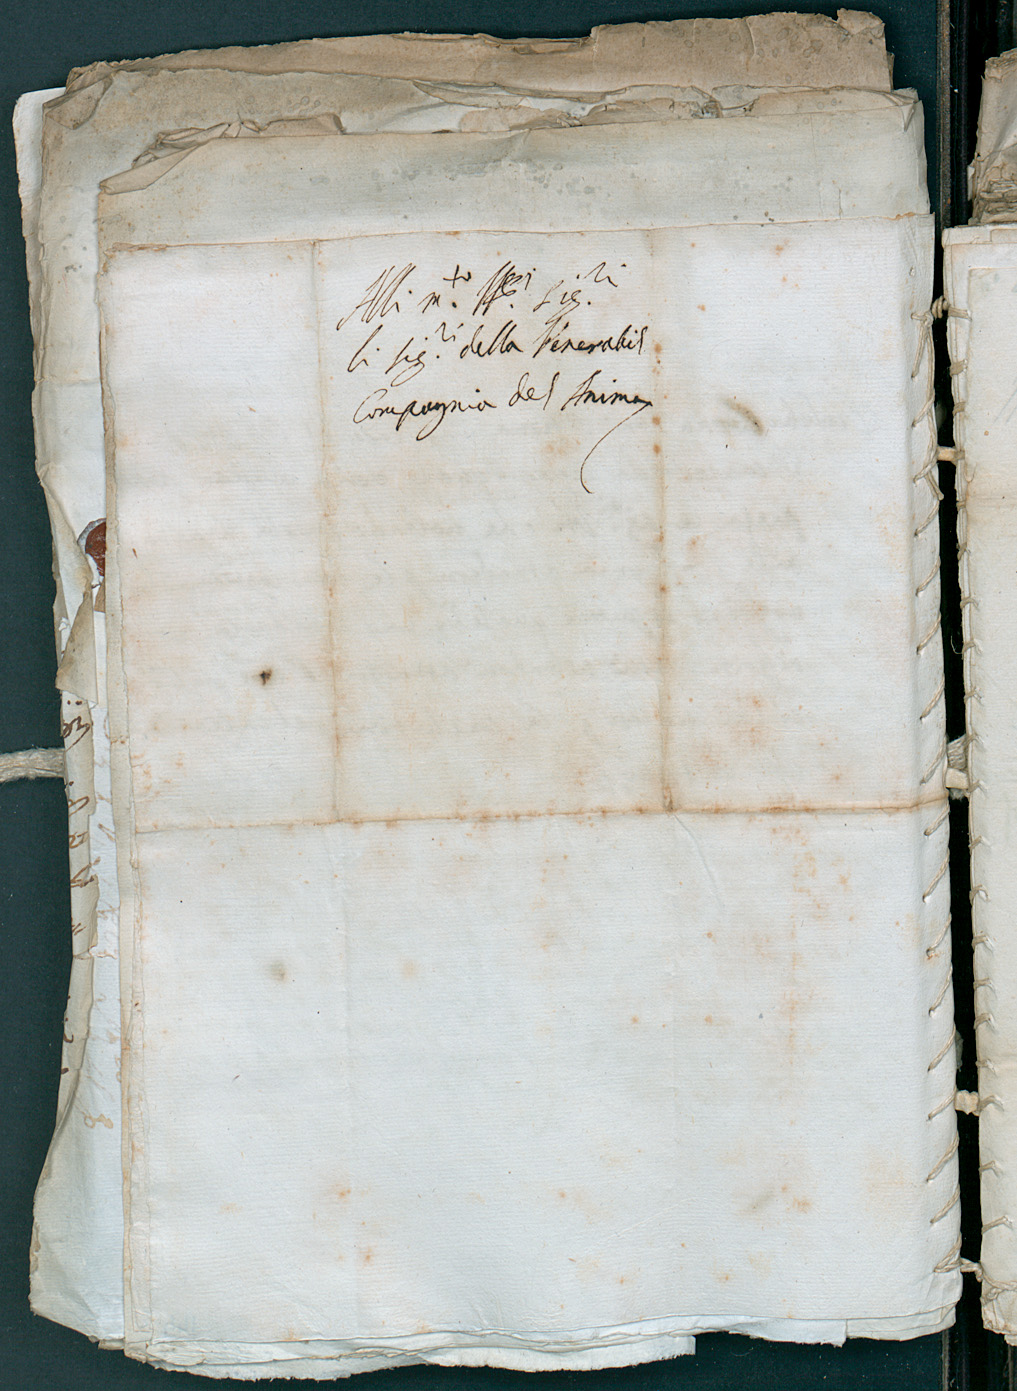 Alli m.to Ill.ri Sig.ri
li sig.ri della Venerabil
Compagnia del Anima